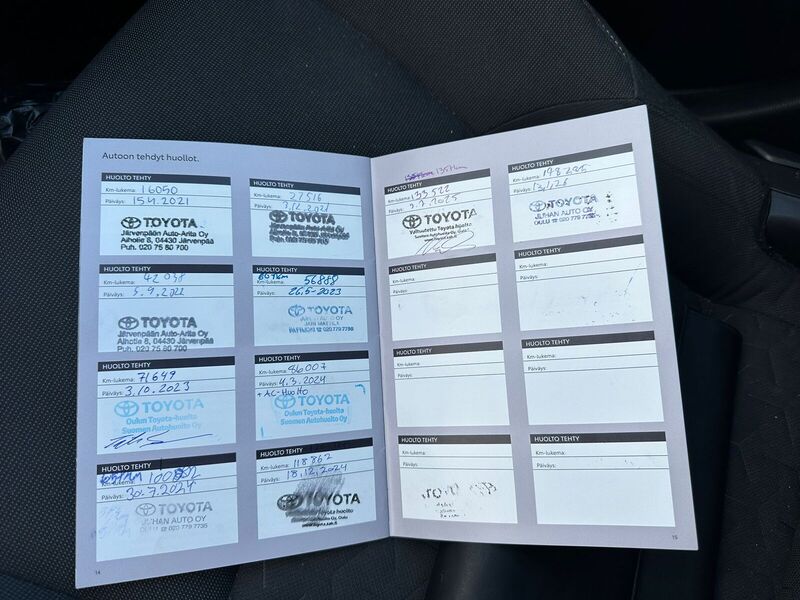 Autoon tehdyt huollot.
HUOLTO TEHTY
Km-lukema: 16050
Päiväys: 15.4.2021
TOYOTA
Järvenpään Auto-Arita Oy
Alhotie 8, 04430 Järvenpää
Puh. 020 75 80 700
HUOLTO TEHTY
Km-lukema: 27516
Päiväys:
TOYOTA
HUOLTO TEHTY
Km-lukema: 42 038
Päiväys: 5.9.2022
TOYOTA
Järvenpään Auto-Arita Oy
Alhotie 8, 04430 Järvenpää
Puh. 020 75 80 700
HUOLTO TEHTY
Km-lukema: 56888
Päiväys: 26.5-2023
TOYOTA
HUOLTO TEHTY
Km-lukema: 71649
Päiväys: 3.10.2023
TOYOTA
Oulun Toyota-huolto
Suomen Autohuolto Oy
HUOLTO TEHTY
Km-lukema: 86007
Päiväys: 4.3.2024
+ AC-Huolto
TOYOTA
Oulun Toyota-huolto
Suomen Autohuolto Oy
HUOLTO TEHTY
Km-lukema:
Päiväys: 30.7.2024
TOYOTA
JUHAN AUTO OY
OULU ☎ 020 779 7736
HUOLTO TEHTY
Km-lukema: 118862
Päiväys: 18.12.2024
TOYOTA
Valtuutettu Toyota huolto
Suomen Autohuolto Oy, Oulu
14
HUOLTO TEHTY
Km-lukema: 133522
Päiväys:
TOYOTA
Valtuutettu Toyota huolto
Suomen Autohuolto Oy, Oulu
HUOLTO TEHTY
Km-lukema:
Päiväys:
TOYOTA
JUHAN AUTO OY
HUOLTO TEHTY
Km-lukema:
Päiväys:
HUOLTO TEHTY
Km-lukema:
Päiväys:
HUOLTO TEHTY
Km-lukema:
Päiväys:
HUOLTO TEHTY
Km-lukema:
Päiväys:
HUOLTO TEHTY
Km-lukema:
Päiväys:
HUOLTO TEHTY
Km-lukema:
Päiväys:
15